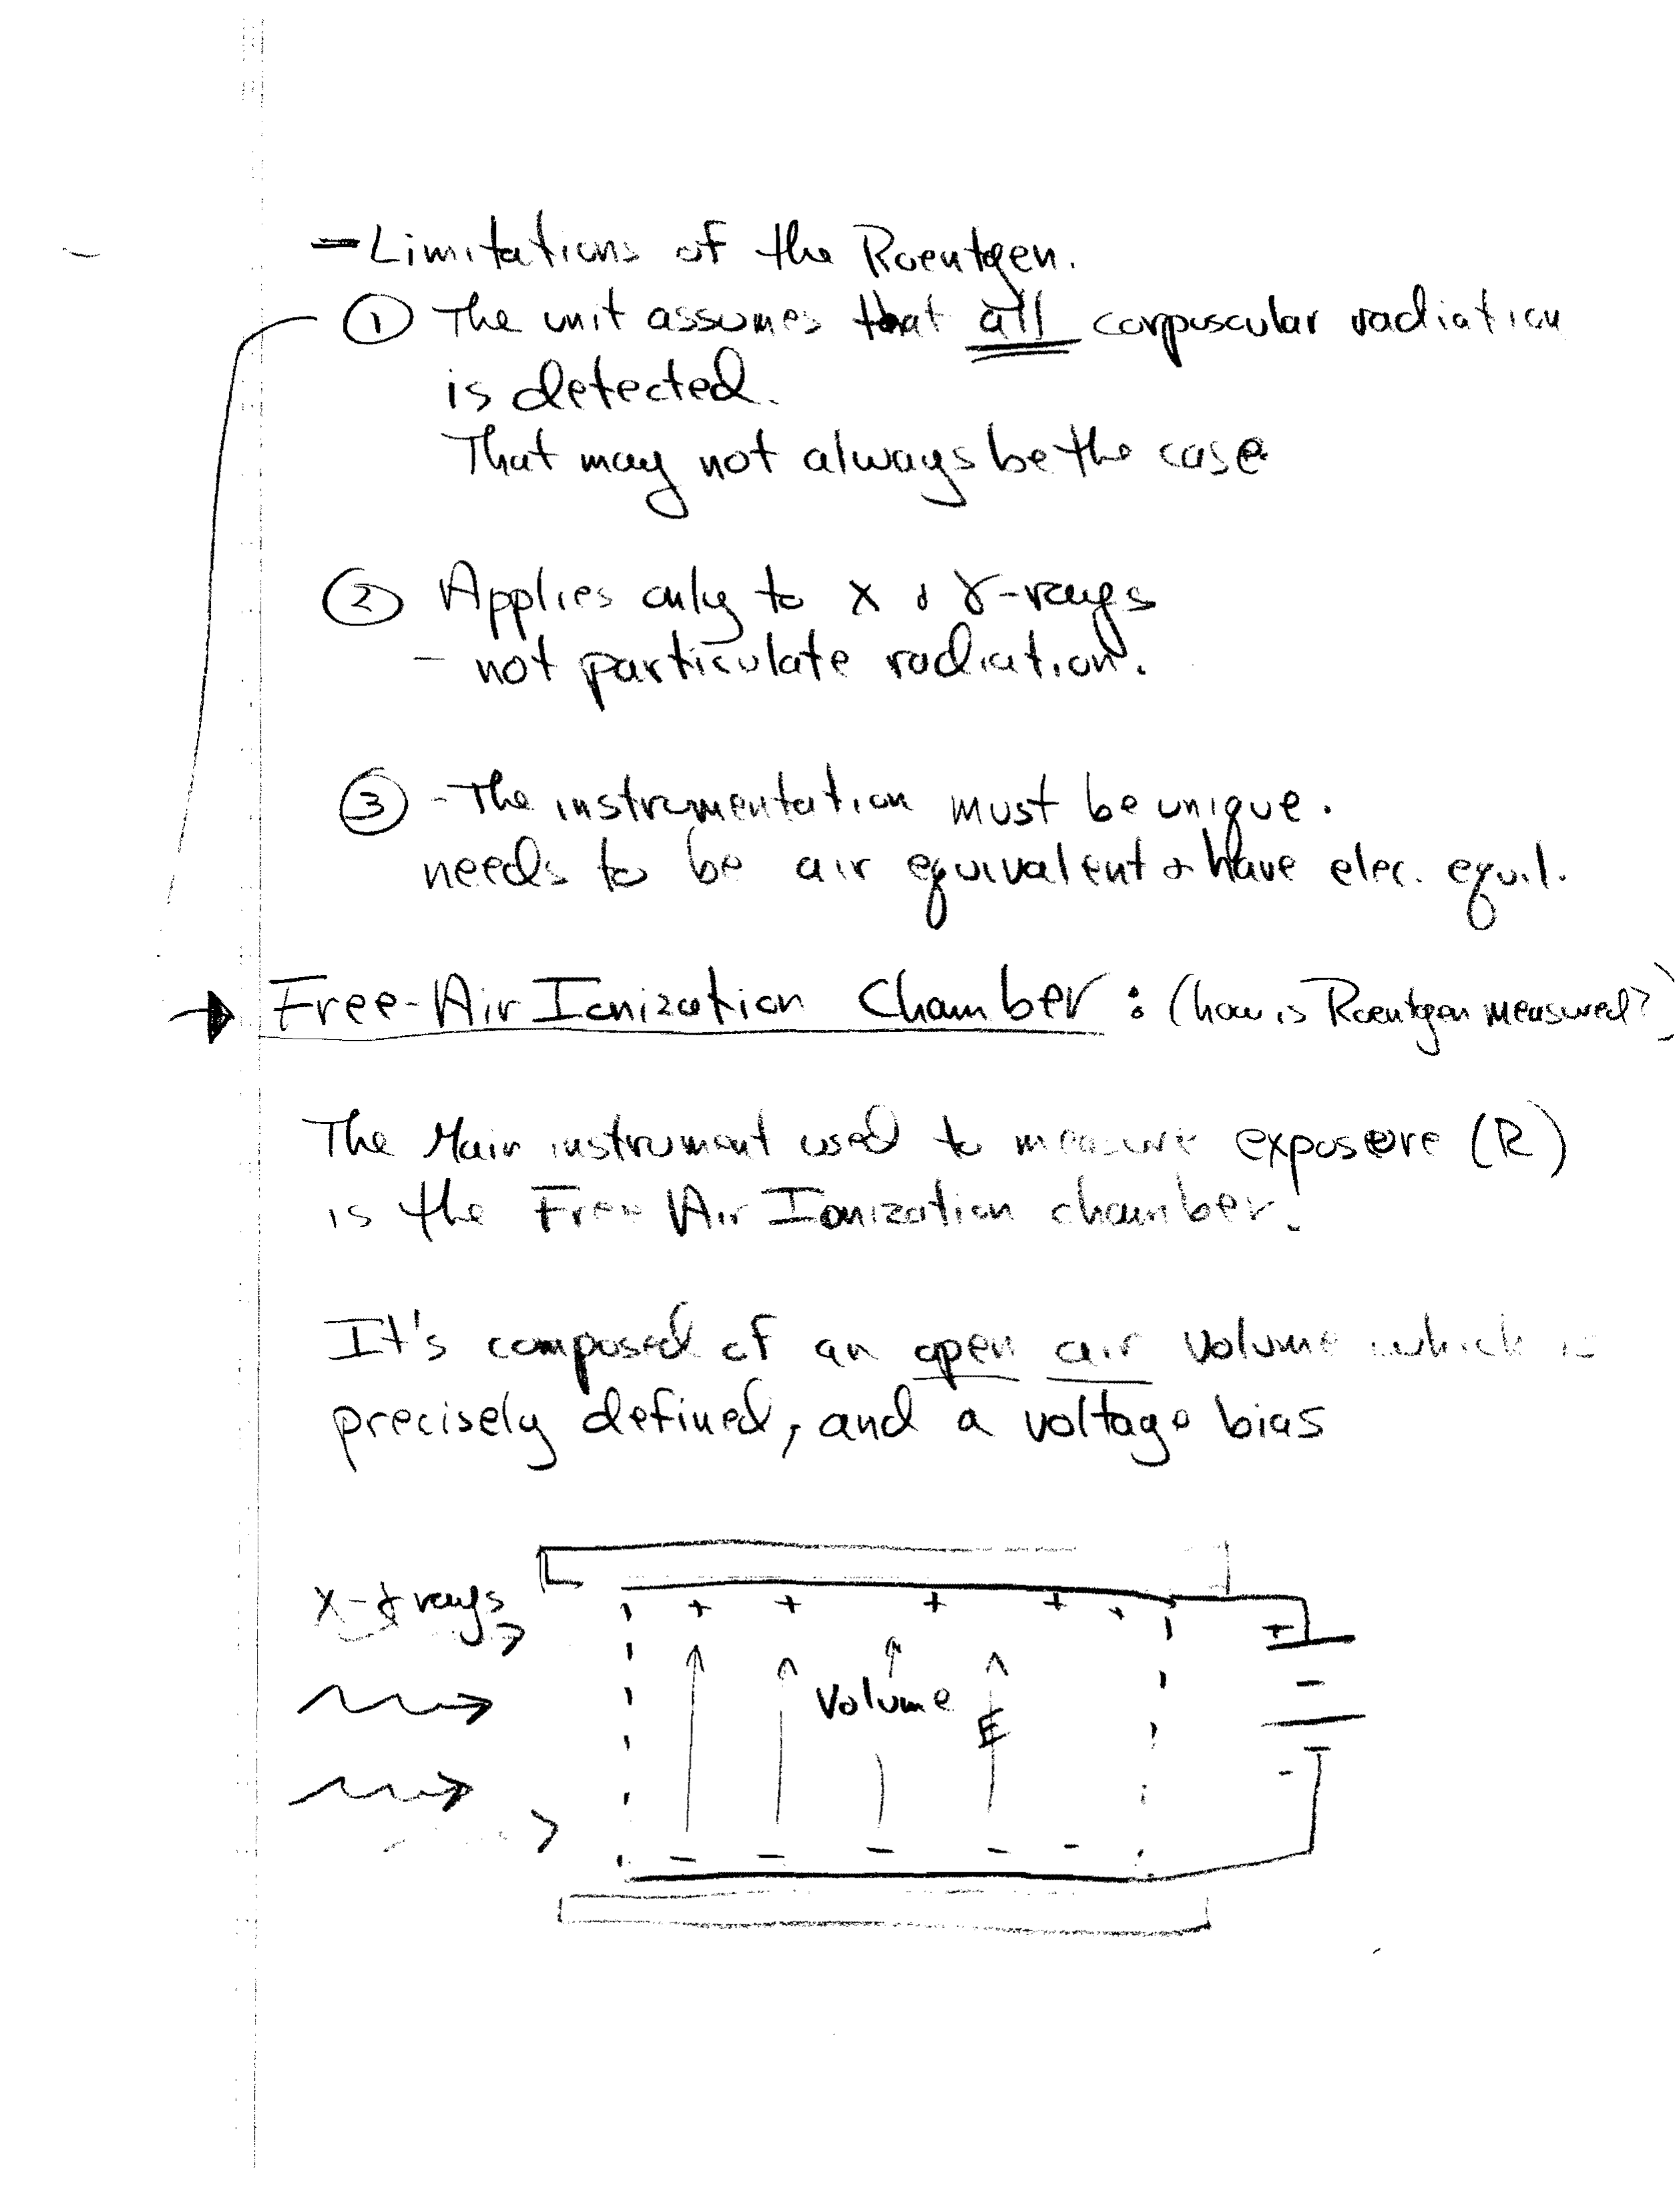 - Limitations of the Roentgen.
① The unit assumes that all corpuscular radiation
is detected.
That may not always be the case
② Applies only to x & γ-rays
- not particulate radiation.
③ - The instrumentation must be unique.
needs to be air equivalent & have elec. equil.
→ Free-Air Ionization Chamber : (how is Roentgen measured?)
The Main instrument used to measure exposure (R)
is the Free Air Ionization chamber.
It's composed of an open air volume which is
precisely defined, and a voltage bias
x-γ rays
+ + + + +
+
Volume
E
-
- - - - -